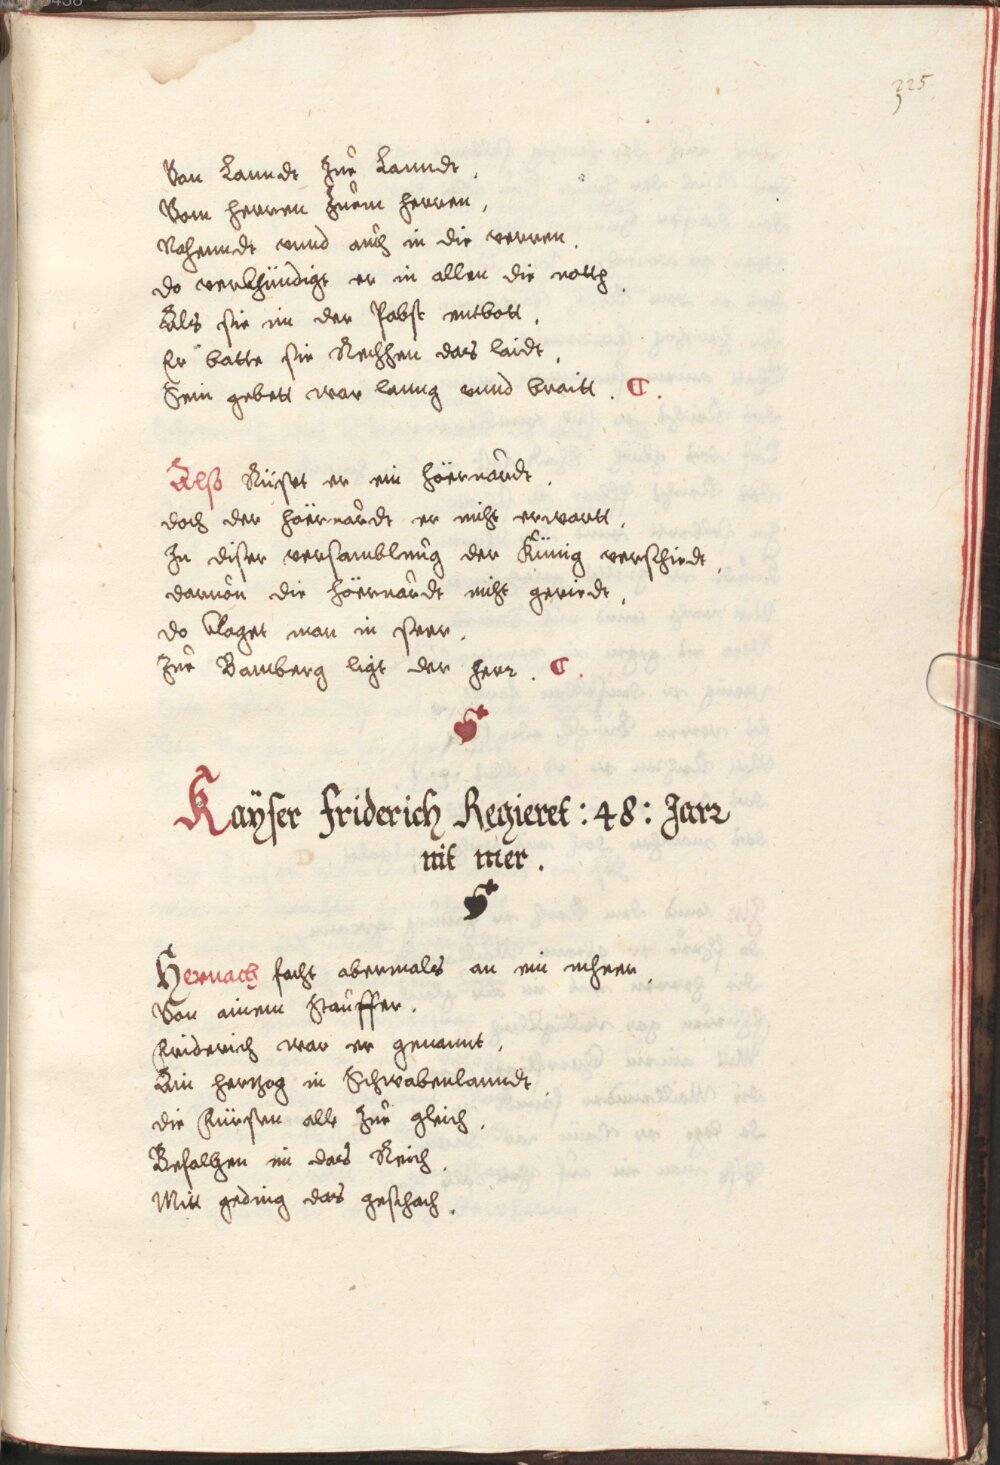 325
Von Lanndt Zue Lanndt,
Vom herren Zuem herren,
Nahenndt vnnd auch in die verren.
do verkhündigt er in allen die noth,
Als sie im der Pabst entbott,
Er batte sie Rechhen das laidt,
Sein gebett war lanng vnnd braitt. C.
Alß Rüstet er ein höeruardt,
doch der höeruardt er nicht erwartt,
In diser versamblung der Künig verschiedt,
daruon die höeruardt nicht geriedt,
do klaget man in seer,
Zue Bamberg ligt der herr. C.
Kayser Friderich Regieret: 48: Jarr
nit mer.
Hernach facht abermals an ein mheer,
Von ainem Stauffer.
Friderich war er genannt,
Ain hertzog in Schwabenlanndt
die Fürsten alle Zue gleich,
Befalhen im das Reich,
Mitt geding das geschach,